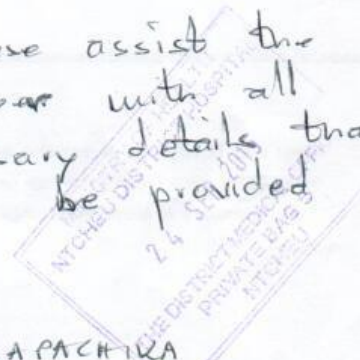 se assist the
with all
ary details tha
be provided
NTCHEU DISTRICT HOSPITAL
24 SEP 2015
THE DISTRICT MEDICAL OFF
PRIVATE BAG 5
NTCHEU
APACHIKA